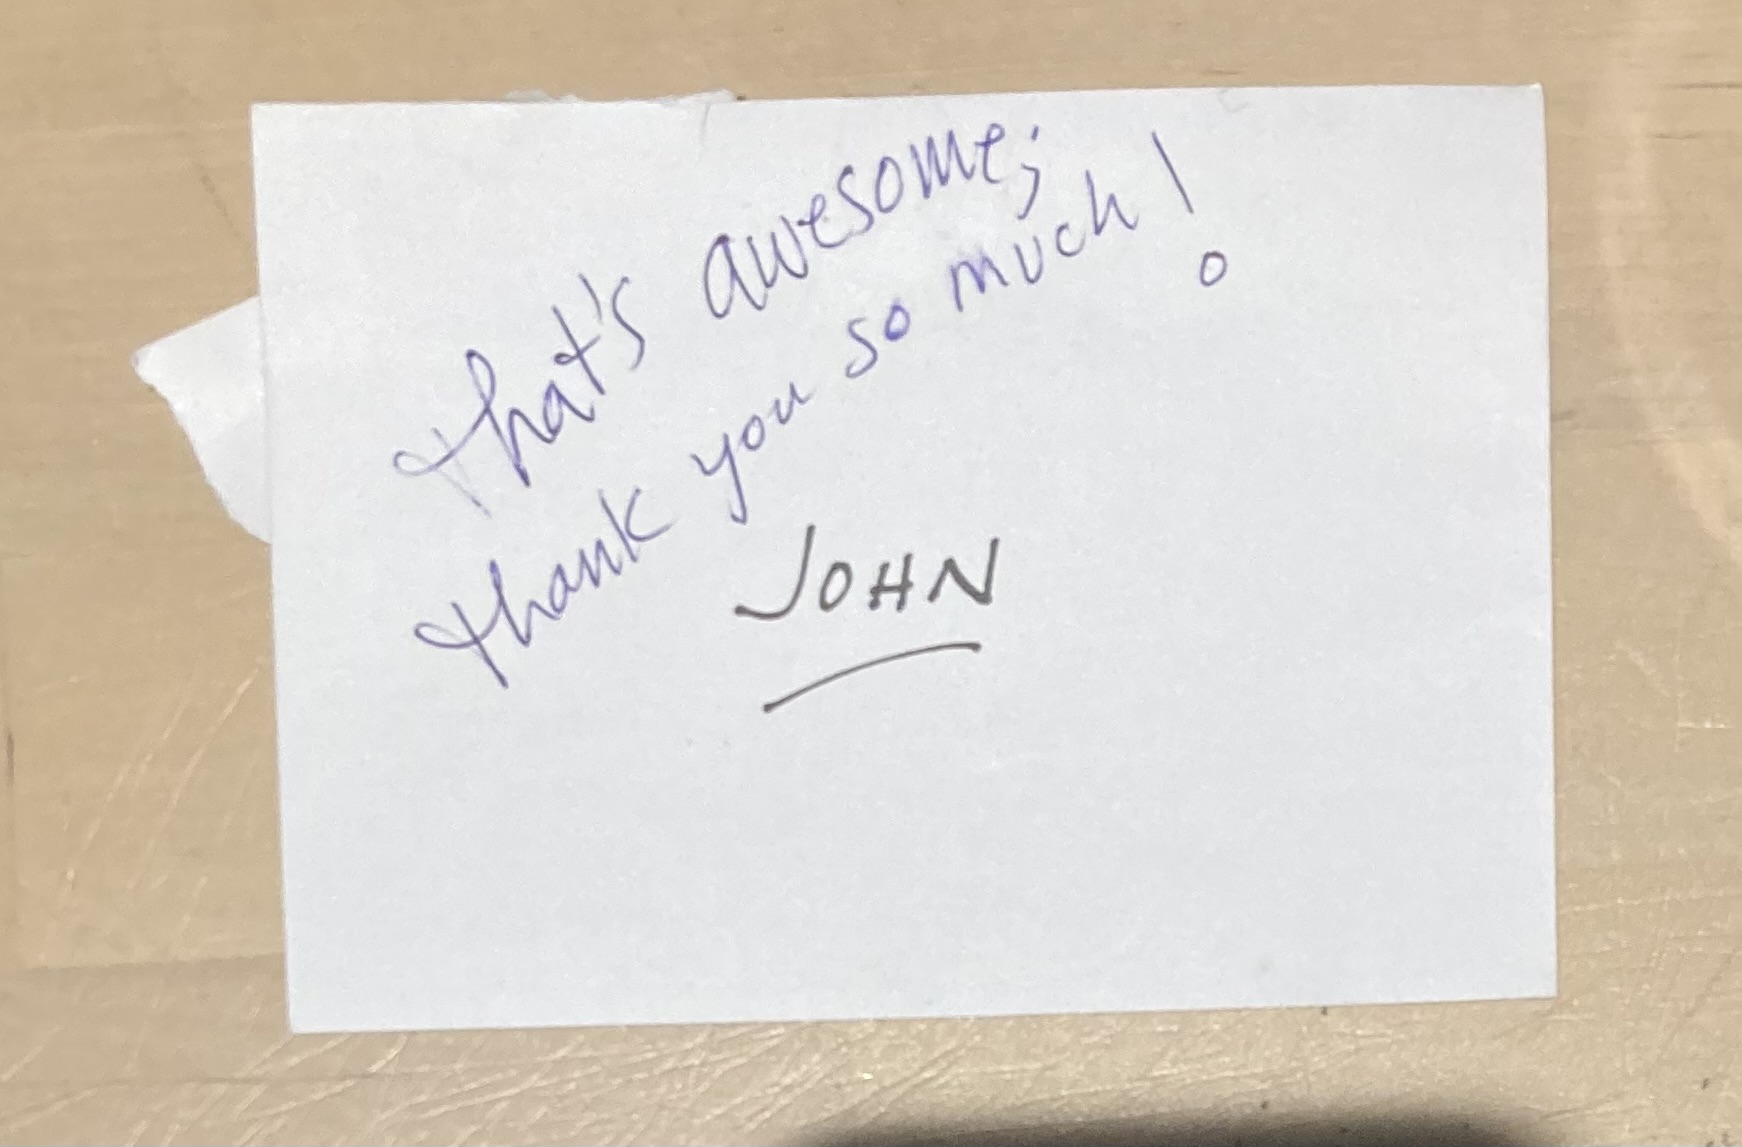 that's awesome;
thank you so much!
JOHN